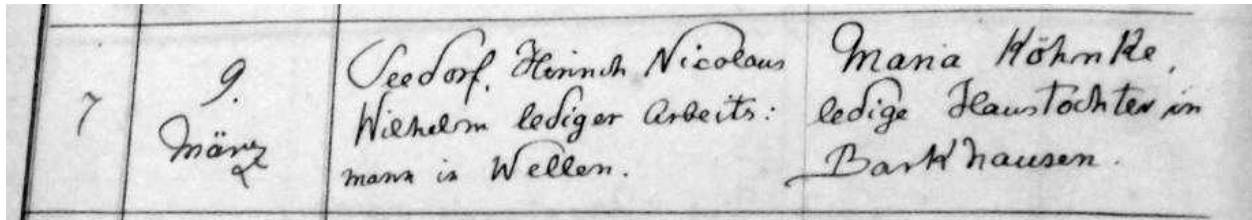 7
9.
März
Seedorf, Hinrich Nicolaus
Wilhelm lediger Arbeits:
mann in Wellen.
Maria Köhnke,
ledige Haustochter in
Barkhausen.